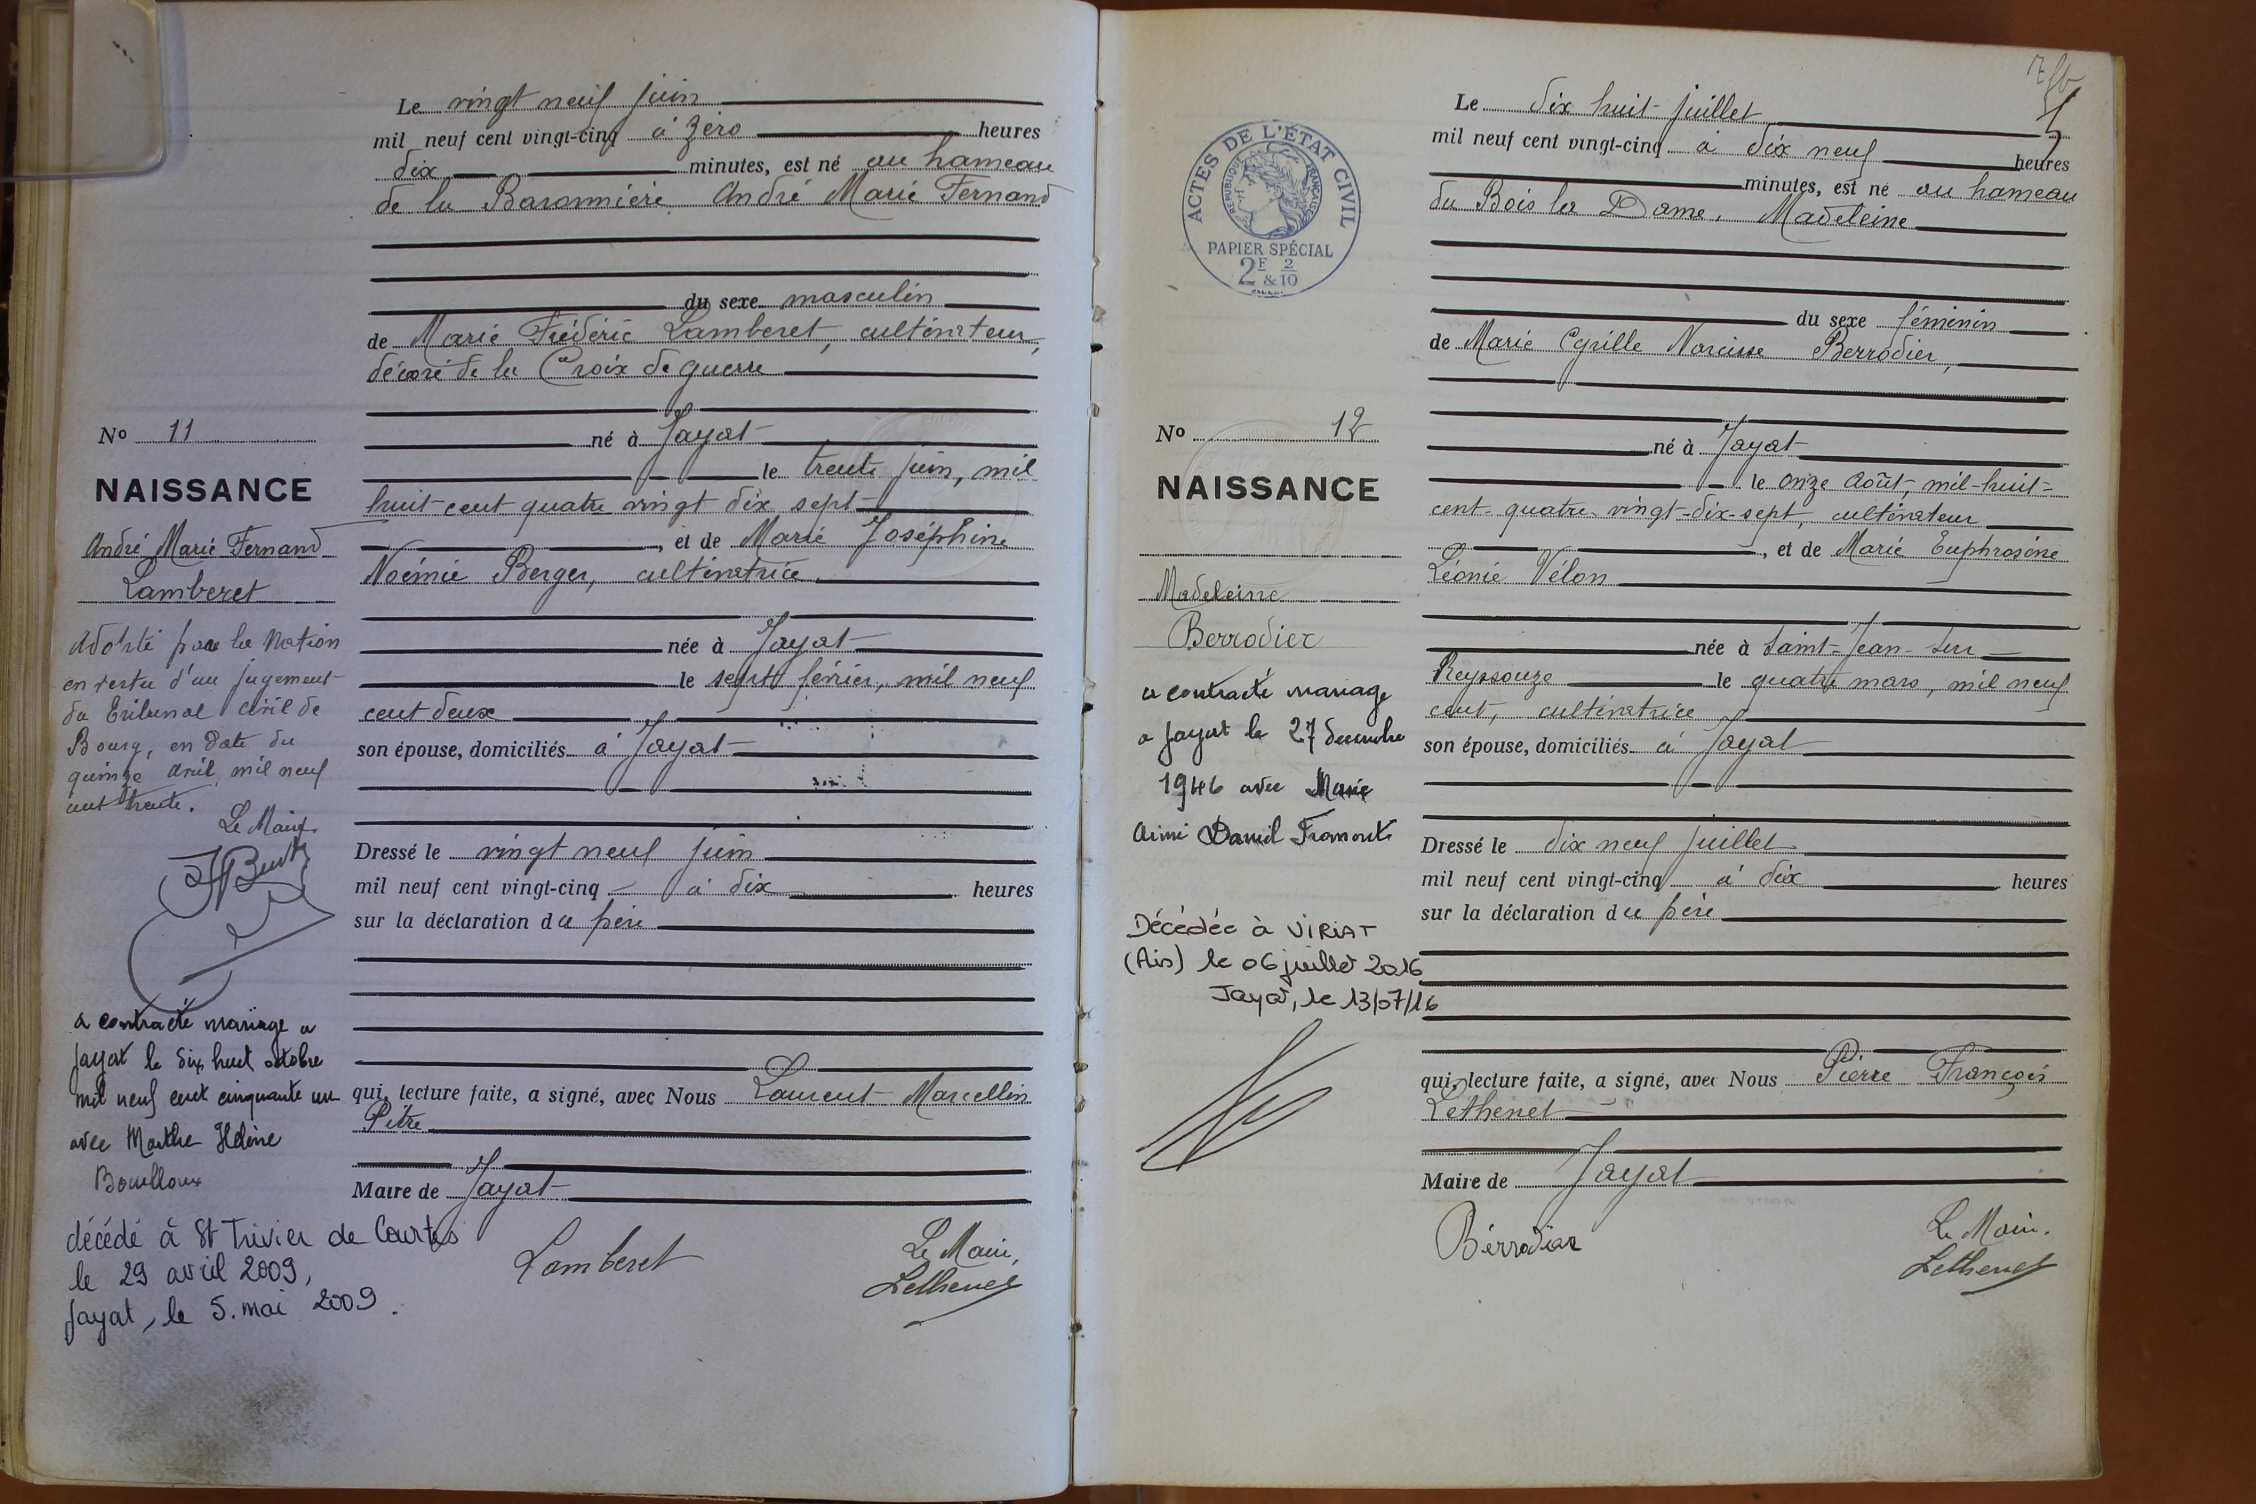 Le vingt neuf juin
mil neuf cent vingt-cinq à zéro heures
dix minutes, est né au hameau
de la Baronnière André Marie Fernand
du sexe masculin
de Marie Frédéric Lamberet, cultivateur,
décoré de la Croix de guerre
né à Jayat
le trente juin, mil
huit cent quatre vingt dix sept
, et de Marie Joséphine
Noémie Berger, cultivatrice
née à Jayat
le sept février, mil neuf
cent deux
son épouse, domiciliés à Jayat
Dressé le vingt neuf juin
mil neuf cent vingt-cinq à dix heures
sur la déclaration du père
qui, lecture faite, a signé, avec Nous Laurent Marcellin
Pitre
Maire de Jayat
Lamberet
Le Maire,
Lethenet
No 11
NAISSANCE
André Marie Fernand
Lamberet
Adopté par la Nation
en vertu d'un jugement
du Tribunal civil de
Bourg, en date du
quinze avril mil neuf
cent trente.
Le Maire
a contracté mariage a
Jayat le dix huit octobre
mil neuf cent cinquante un
avec Marthe Hélène
Bouilloux
décédé à St Trivier de Courtes
le 29 avril 2009,
Jayat, le 5. mai 2009.
ACTES DE L'ÉTAT CIVIL
RÉPUBLIQUE FRANÇAISE
PAPIER SPÉCIAL
2F & 2/10
Le dix huit juillet
mil neuf cent vingt-cinq à dix neuf heures
minutes, est né au hameau
du Bois la Dame, Madeleine
du sexe féminin
de Marie Cyrille Narcisse Berrodier,
né à Jayat
le onze août, mil-huit-
cent-quatre-vingt-dix-sept, cultivateur
, et de Marie Euphrosine
Léonie Vélon
née à Saint-Jean-sur-
Reyssouze le quatre mars, mil neuf
cent, cultivatrice
son épouse, domiciliés à Jayat
Dressé le dix neuf juillet
mil neuf cent vingt-cinq à dix heures
sur la déclaration du père
qui, lecture faite, a signé, avec Nous Pierre François
Lethenet
Maire de Jayat
Bérrodier
Le Maire.
Lethenet
No 12
NAISSANCE
Madeleine
Berrodier
a contracté mariage
a Jayat le 27 decembre
1946 avec Marie
Aimé Daniel Fromont
Décédée à VIRIAT
(Ain) le 06 juillet 2016
Jayat, le 13/07/16